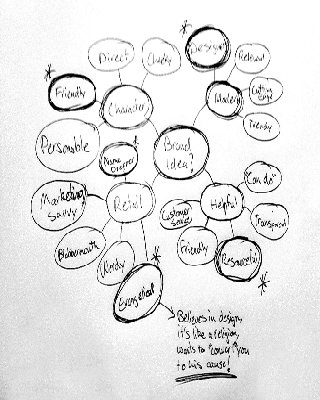 Direct
Quirky
Designer
Relevant
Friendly
Character
Modern
Cutting
edge
Trendy
Personable
Name
Dropper
Brand
Idea?
Marketing
Savvy
Retail
Helpful
"Can do"
Customer
Service
Transparent
Blabbermouth
Friendly
Resourceful
Evangelical
Believes in design,
it's like a religion,
wants to "convert" you
to his cause!